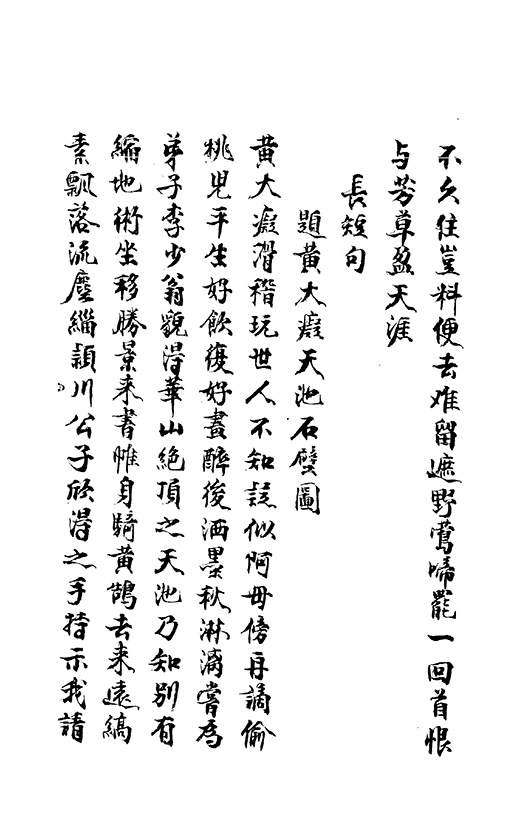 不久住豈料便去难留遮野鶯啼罷一回首恨
与芳草盈天涯
長短句
題黄大癡天池石壁圖
黄大癡滑稽玩世人不知疑似阿母傍再謫偷
桃兒平生好飲復好畫醉後洒墨秋淋漓嘗爲
弟子李少翁貌得華山絶頂之天池乃知别有
縮地術坐移勝景来書帷身騎黄鵠去来遠縞
素飄落流塵緇穎川公子欣得之手持示我請